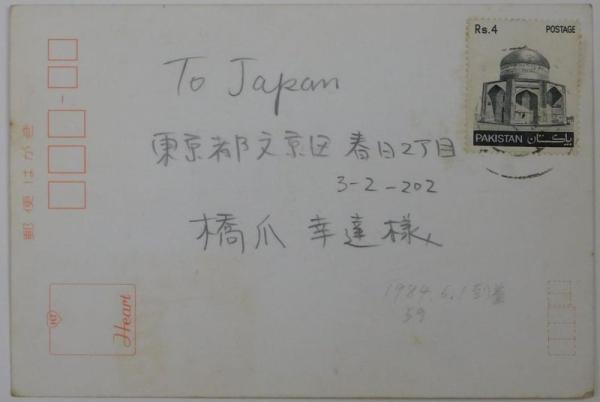 Rs.4 POSTAGE
PAKISTAN پاکستان
To Japan
東京都文京区 春日2丁目
3-2-202
橋爪 幸達様
1984.5.1到着
59
郵便はがき
Heart